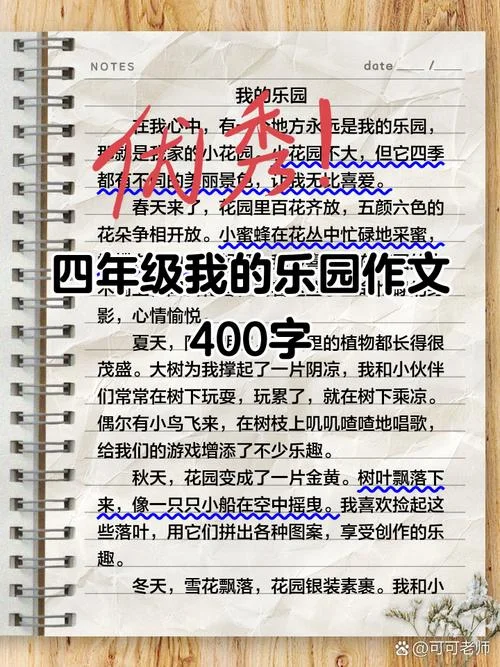 NOTES
date ____ / ____
我的乐园
在我心中，有一个地方永远是我的乐园，
那就是我家的小花园。小花园不大，但它四季
都有不同的美丽景色，让我无比喜爱。
优秀！
春天来了，花园里百花齐放，五颜六色的
花朵争相开放。小蜜蜂在花丛中忙碌地采蜜，
四年级我的乐园作文
400字
影，心情愉悦
夏天，里的植物都长得很
茂盛。大树为我撑起了一片阴凉，我和小伙伴
们常常在树下玩耍，玩累了，就在树下乘凉。
偶尔有小鸟飞来，在树枝上叽叽喳喳地唱歌，
给我们的游戏增添了不少乐趣。
秋天，花园变成了一片金黄。树叶飘落下
来，像一只只小船在空中摇曳。我喜欢捡起这
些落叶，用它们拼出各种图案，享受创作的乐
趣。
冬天，雪花飘落，花园银装素裹。我和小
@可可老师